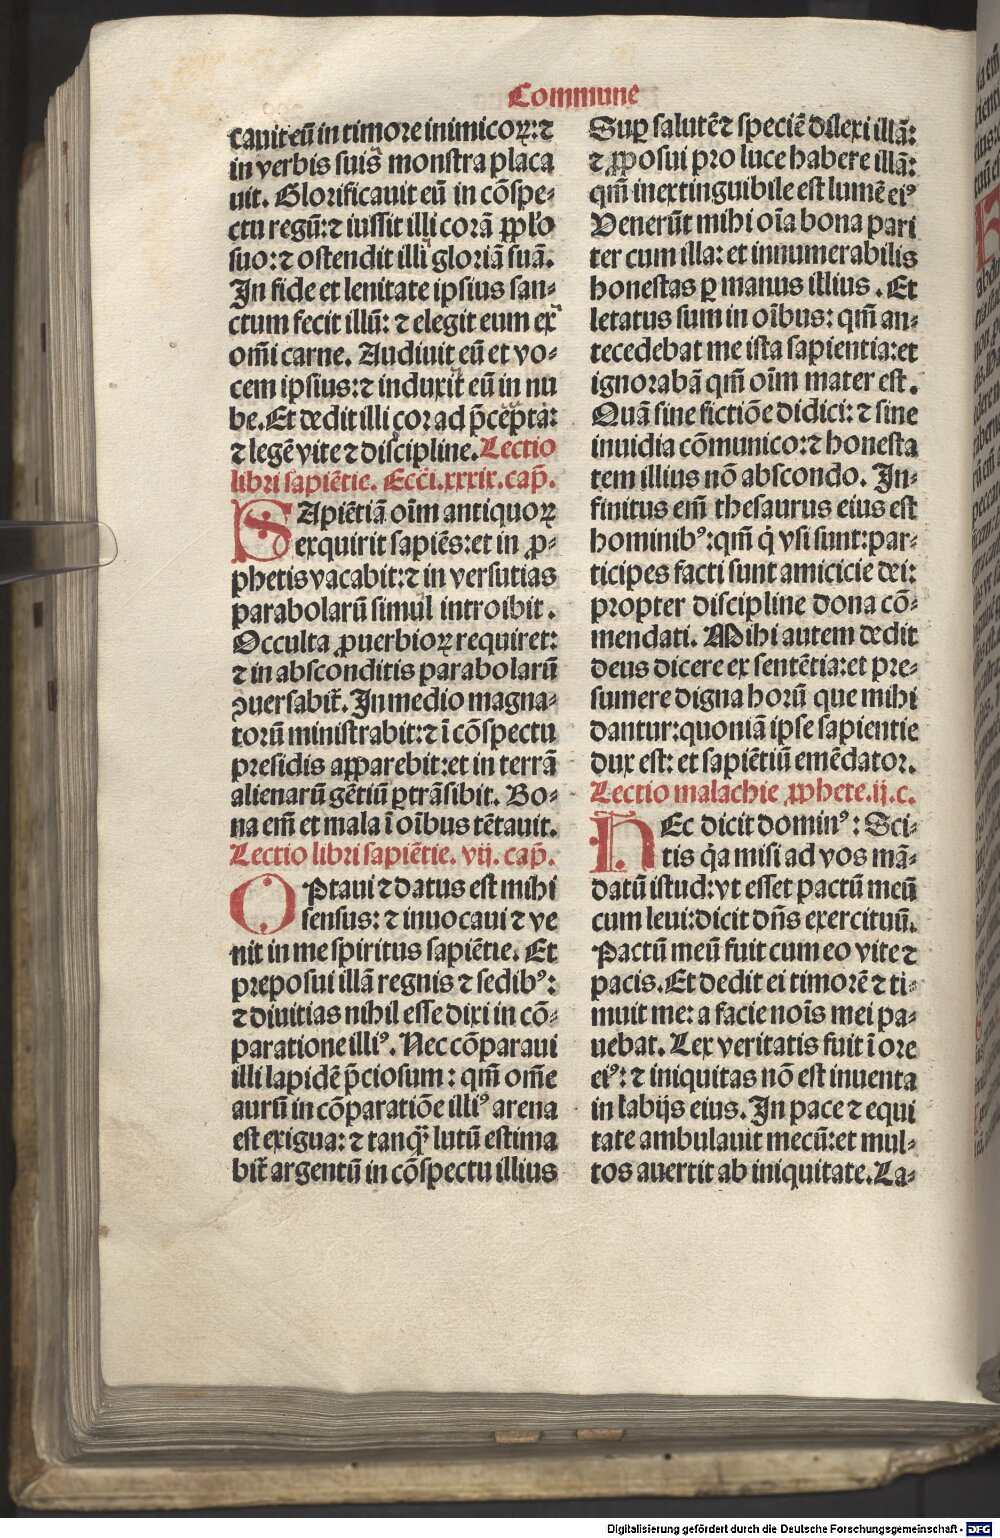 Commune
cauit eū in timore inimicoꝝ: ⁊
in verbis suis monstra placa
uit. Glorificauit eū in cōspe⸗
ctu regū: ⁊ iussit illi corā ꝓplo
suo: ⁊ ostendit illi gloriā suā.
In fide et lenitate ipsius san⸗
ctum fecit illū: ⁊ elegit eum ex
om̄i carne. Audiuit eū et vo⸗
cem ipsius: ⁊ induxit eū in nu
be. Et dedit illi cor ad p̄cepta:
⁊ legē vite ⁊ discipline. Lectio
libri sapiētie. Ecci. xxxix. cap̄.
SApiētiā oīm antiquoꝝ
exquirit sapiēs: et in ꝓ⸗
phetis vacabit: ⁊ in versutias
parabolarū simul introibit.
Occulta ꝓuerbioꝝ requiret:
⁊ in absconditis parabolarū
ꝯuersabit̄. In medio magna⸗
torū ministrabit: ⁊ ī cōspectu
presidis apparebit: et in terrā
alienarū gētiū ꝑtrāsibit. Bo⸗
na em̄ et mala ī oībus tētauit.
Lectio libri sapiētie. vij. cap̄.
OPtaui ⁊ datus est mihi
sensus: ⁊ inuocaui ⁊ ve
nit in me spiritus sapiētie. Et
preposui illā regnis ⁊ sedibꝰ:
⁊ diuitias nihil esse dixi in cō⸗
paratione illiꝰ. Nec cōparaui
illi lapidē p̄ciosum: qm̄ om̄e
aurū in cōparatiōe illiꝰ arena
est exigua: ⁊ tanqᷓ lutū estima
bit̄ argentū in cōspectu illius
Suꝑ salutē ⁊ speciē dilexi illā:
⁊ ꝓposui pro luce habere illā:
qm̄ inextinguibile est lumē eiꝰ
Venerūt mihi oīa bona pari
ter cum illa: et innumerabilis
honestas ꝑ manus illius. Et
letatus sum in oībus: qm̄ an⸗
tecedebat me ista sapientia: et
ignorabā qm̄ oīm mater est.
Quā sine fictiōe didici: ⁊ sine
inuidia cōmunico: ⁊ honesta
tem illius nō abscondo. In⸗
finitus em̄ thesaurus eius est
hominibꝰ: qm̄ q̇ vsi sunt: par⸗
ticipes facti sunt amicicie dei:
propter discipline dona cō⸗
mendati. Mihi autem dedit
deus dicere ex sentētia: et pre⸗
sumere digna horū que mihi
dantur: quoniā ipse sapientie
dux est: et sapiētiū emēdator.
Lectio malachie ꝓphete. ij. c.
HEc dicit dominꝰ: Sci⸗
tis q̇a misi ad vos mā⸗
datū istud: vt esset pactū meū
cum leui: dicit dn̄s exercituū.
Pactū meū fuit cum eo vite ⁊
pacis. Et dedit ei timorē ⁊ ti⸗
muit me: a facie noīs mei pa⸗
uebat. Lex veritatis fuit ī ore
eiꝰ: ⁊ iniquitas nō est inuenta
in labijs eius. In pace ⁊ equi
tate ambulauit mecū: et mul⸗
tos auertit ab iniquitate. La⸗
Digitalisierung gefördert durch die Deutsche Forschungsgemeinschaft - DFG